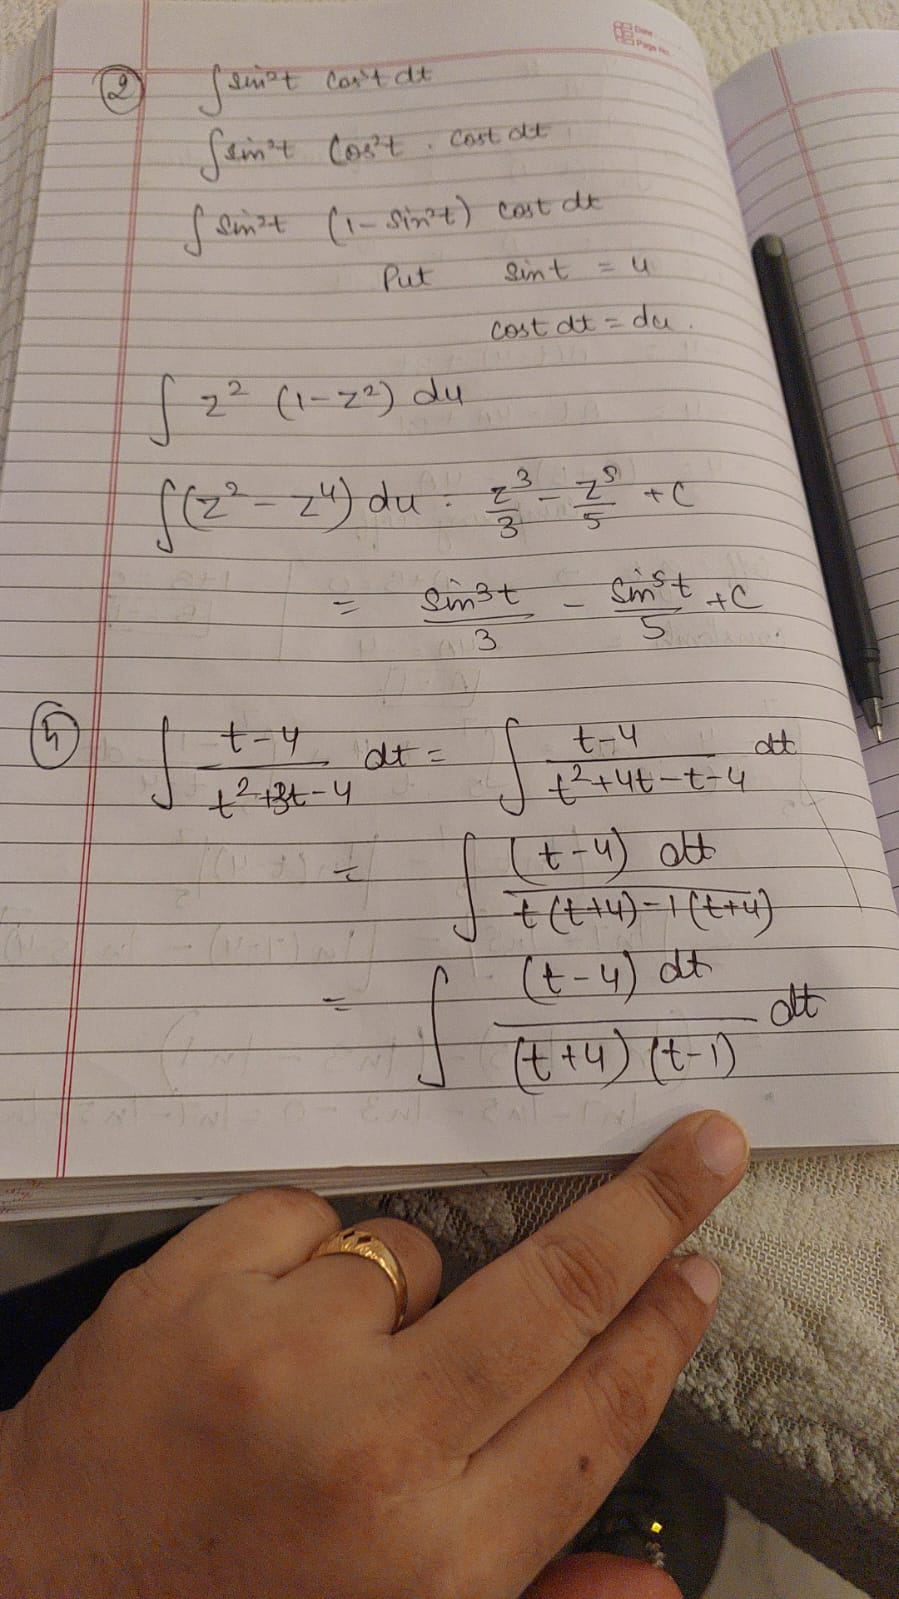 Date
Page No.
② ∫ sin²t cos³t dt
∫ sin²t cos²t . cost dt
∫ sin²t (1 - sin²t) cost dt
Put sint = u
cost dt = du.
∫ z² (1 - z²) du
∫ (z² - z⁴) du = z³/3 - z⁵/5 + C
= sin³t/3 - sin⁵t/5 + C
⑤ ∫ (t-4)/(t²+3t-4) dt = ∫ (t-4)/(t²+4t-t-4) dt
= ∫ (t-4) dt/(t(t+4)-1(t+4))
= ∫ (t-4) dt/((t+4)(t-1)) dt